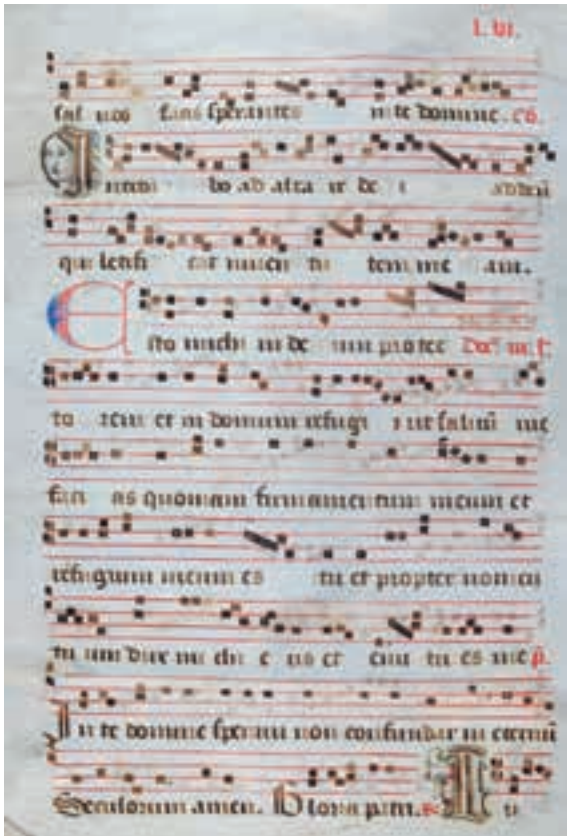 l. vi.
sal uos fans sperantes in te domine. cō
Introi bo ad altare de i ad deū
qui letifi cat iuuen tu tem me am.
Esto michi in de um protec
to rem et in domum refugi i ut saluū me
faci as quoniam firmamentum meum et
refugium meum es tu et propter nomen
tu um dux mi chi e us et enu tri es me p̄.
In te domine speraui non confundar in eternū
Seculorum amen. Gloria patri. Ps I lu